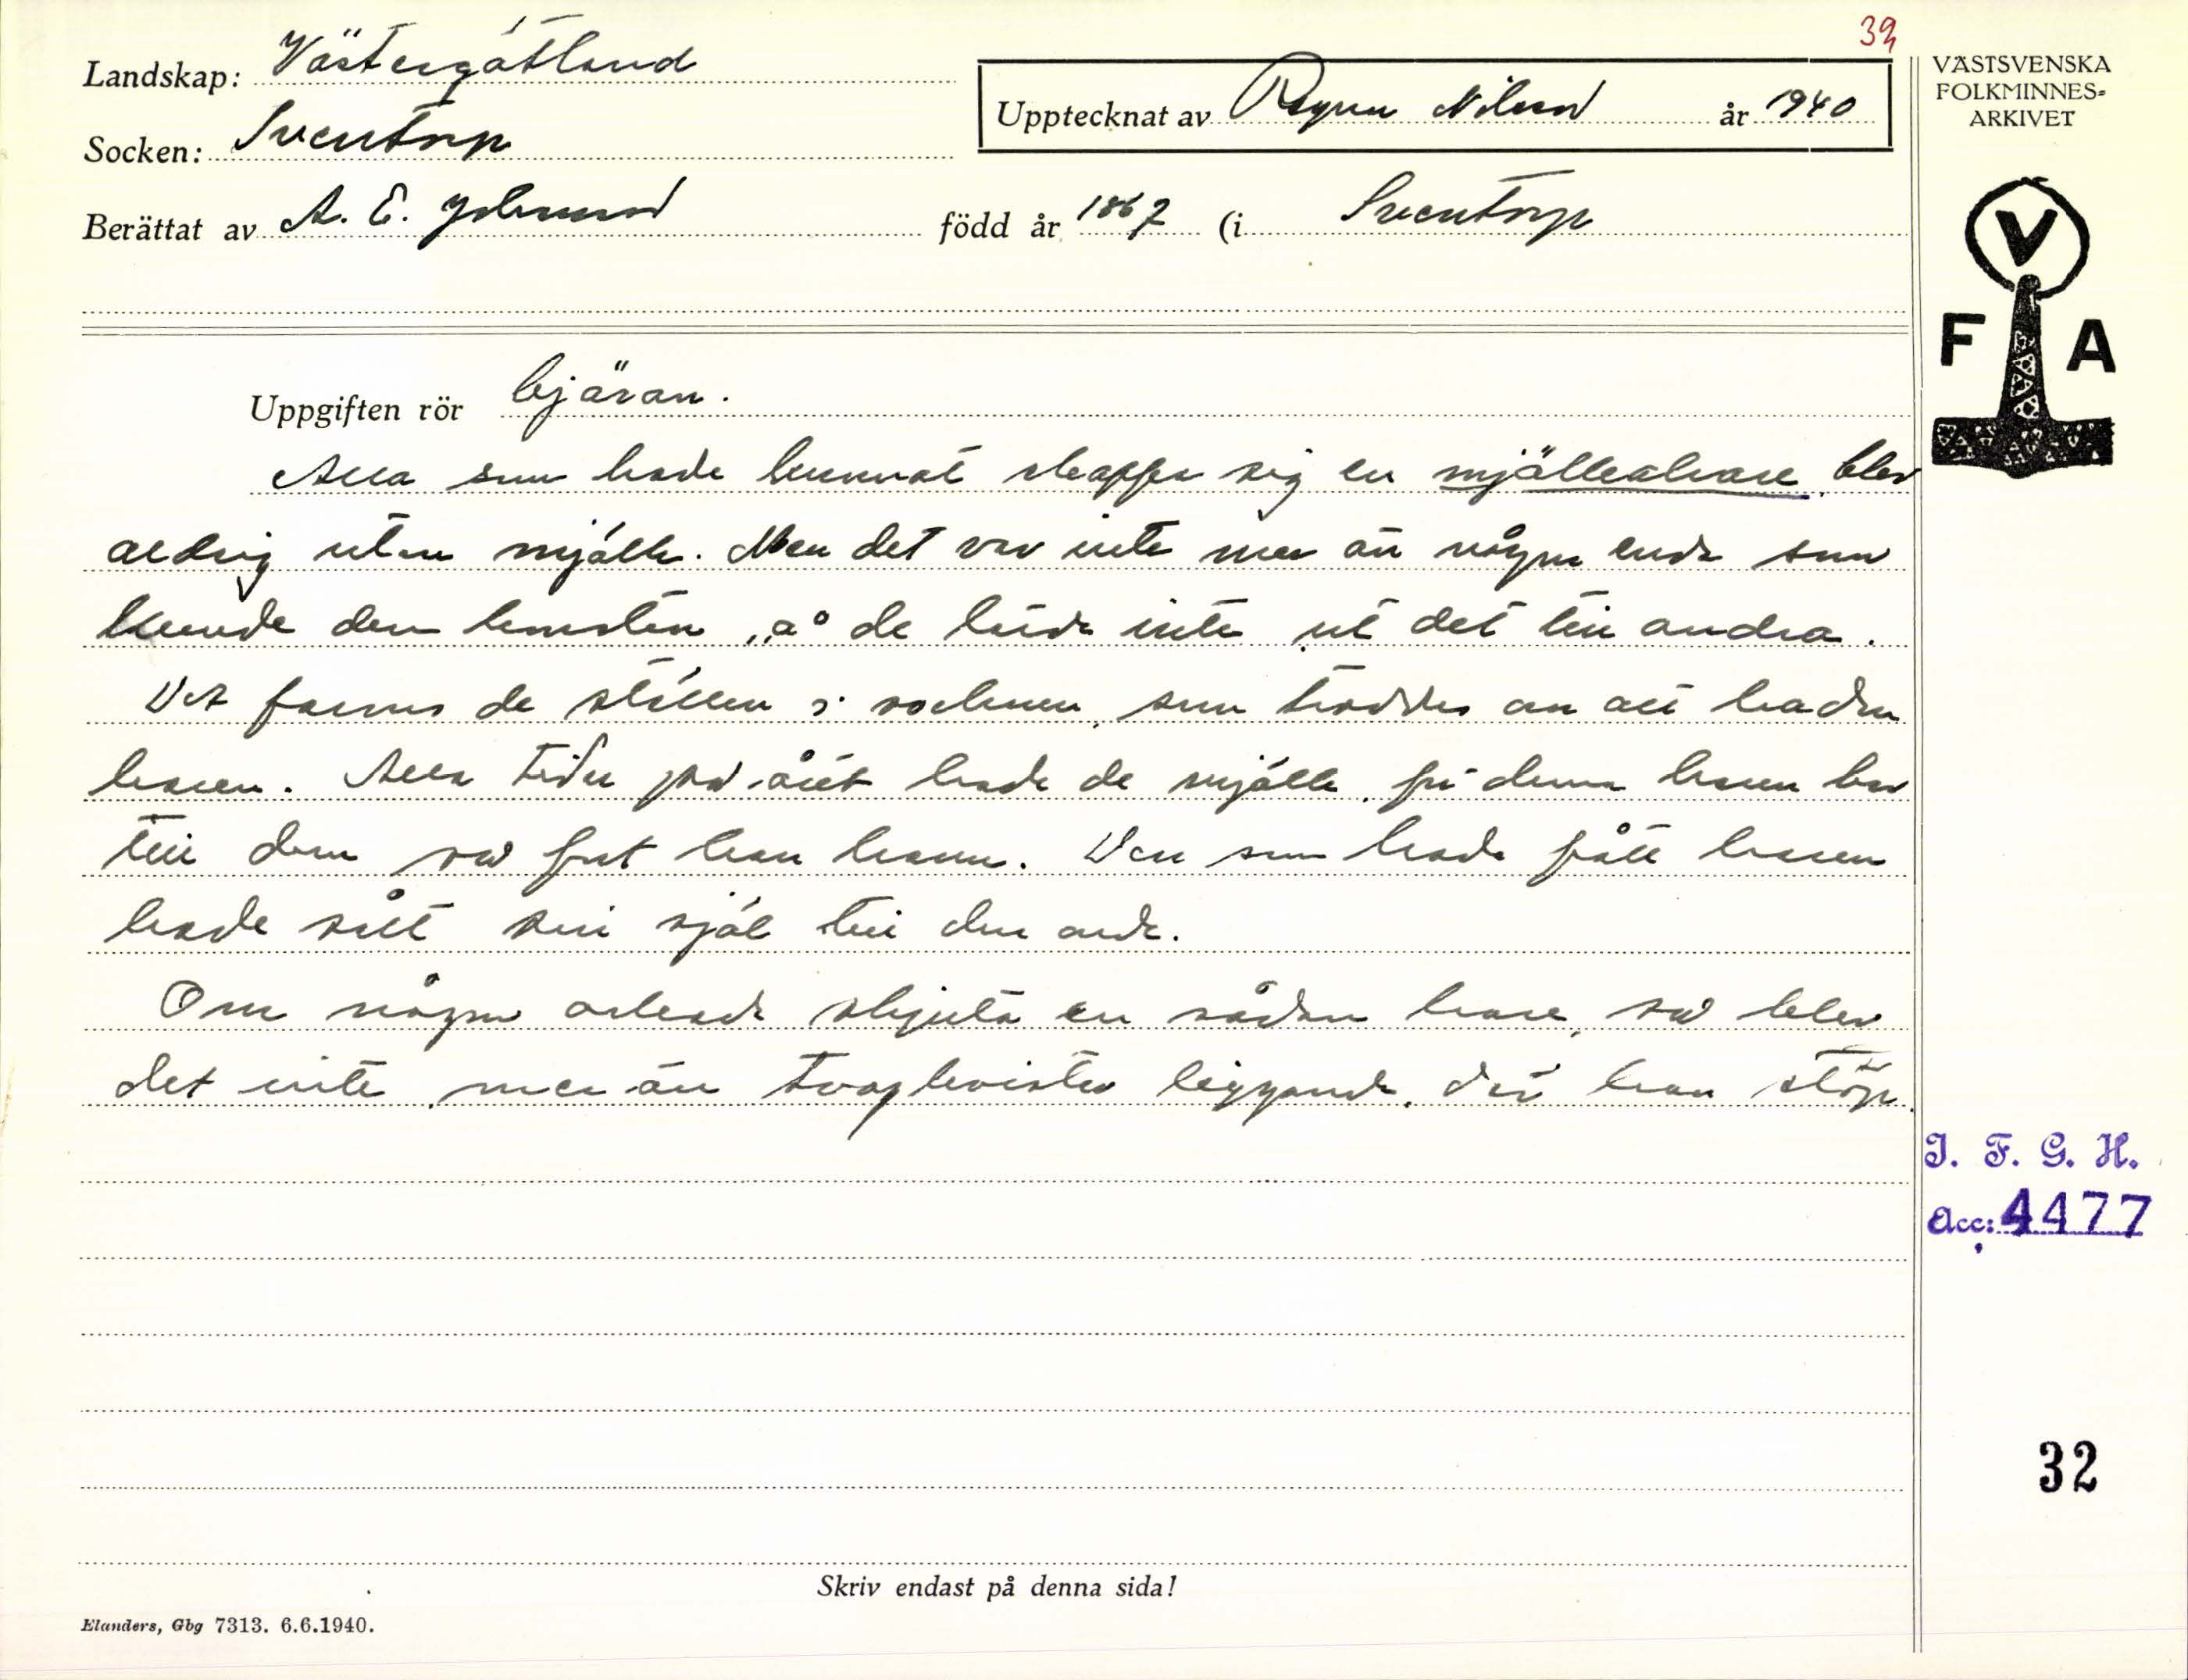 39
Landskap: Västergötland
VÄSTSVENSKA
FOLKMINNES-
ARKIVET
Upptecknat av Ragnar Nilsson år 1940
Socken: Sventorp
Berättat av A. E. Johansson född år 1867 (i Sventorp
V
F A
Uppgiften rör bjäran.
Alla som hade kunnat skaffa sig en mjölkahare blev
aldrig utan mjölk. Men det var inte mer än någon enda som
kunde den konsten, å de lärde inte ut det till andra.
Det fanns de ställen i socknen, som troddes om att ha den
haren. Alla tider på året hade de mjölk, för denna haren bar
till dem så fort han hann. Den som hade fått haren
hade sålt sin själ till den onde.
Om någon ville skjuta en sådan hare, så blev
det inte mer än tvagkvistar liggande, där han stöp.
I. F. G. H.
Acc: 4477
32
Skriv endast på denna sida!
Elanders, Gbg 7313. 6.6.1940.